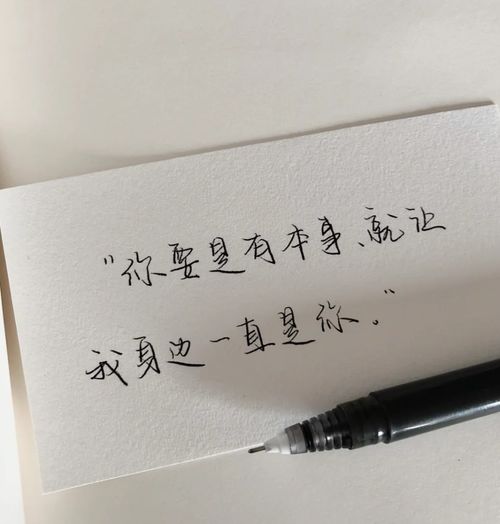 “你要是有本事、就让
我身边一直是你。”